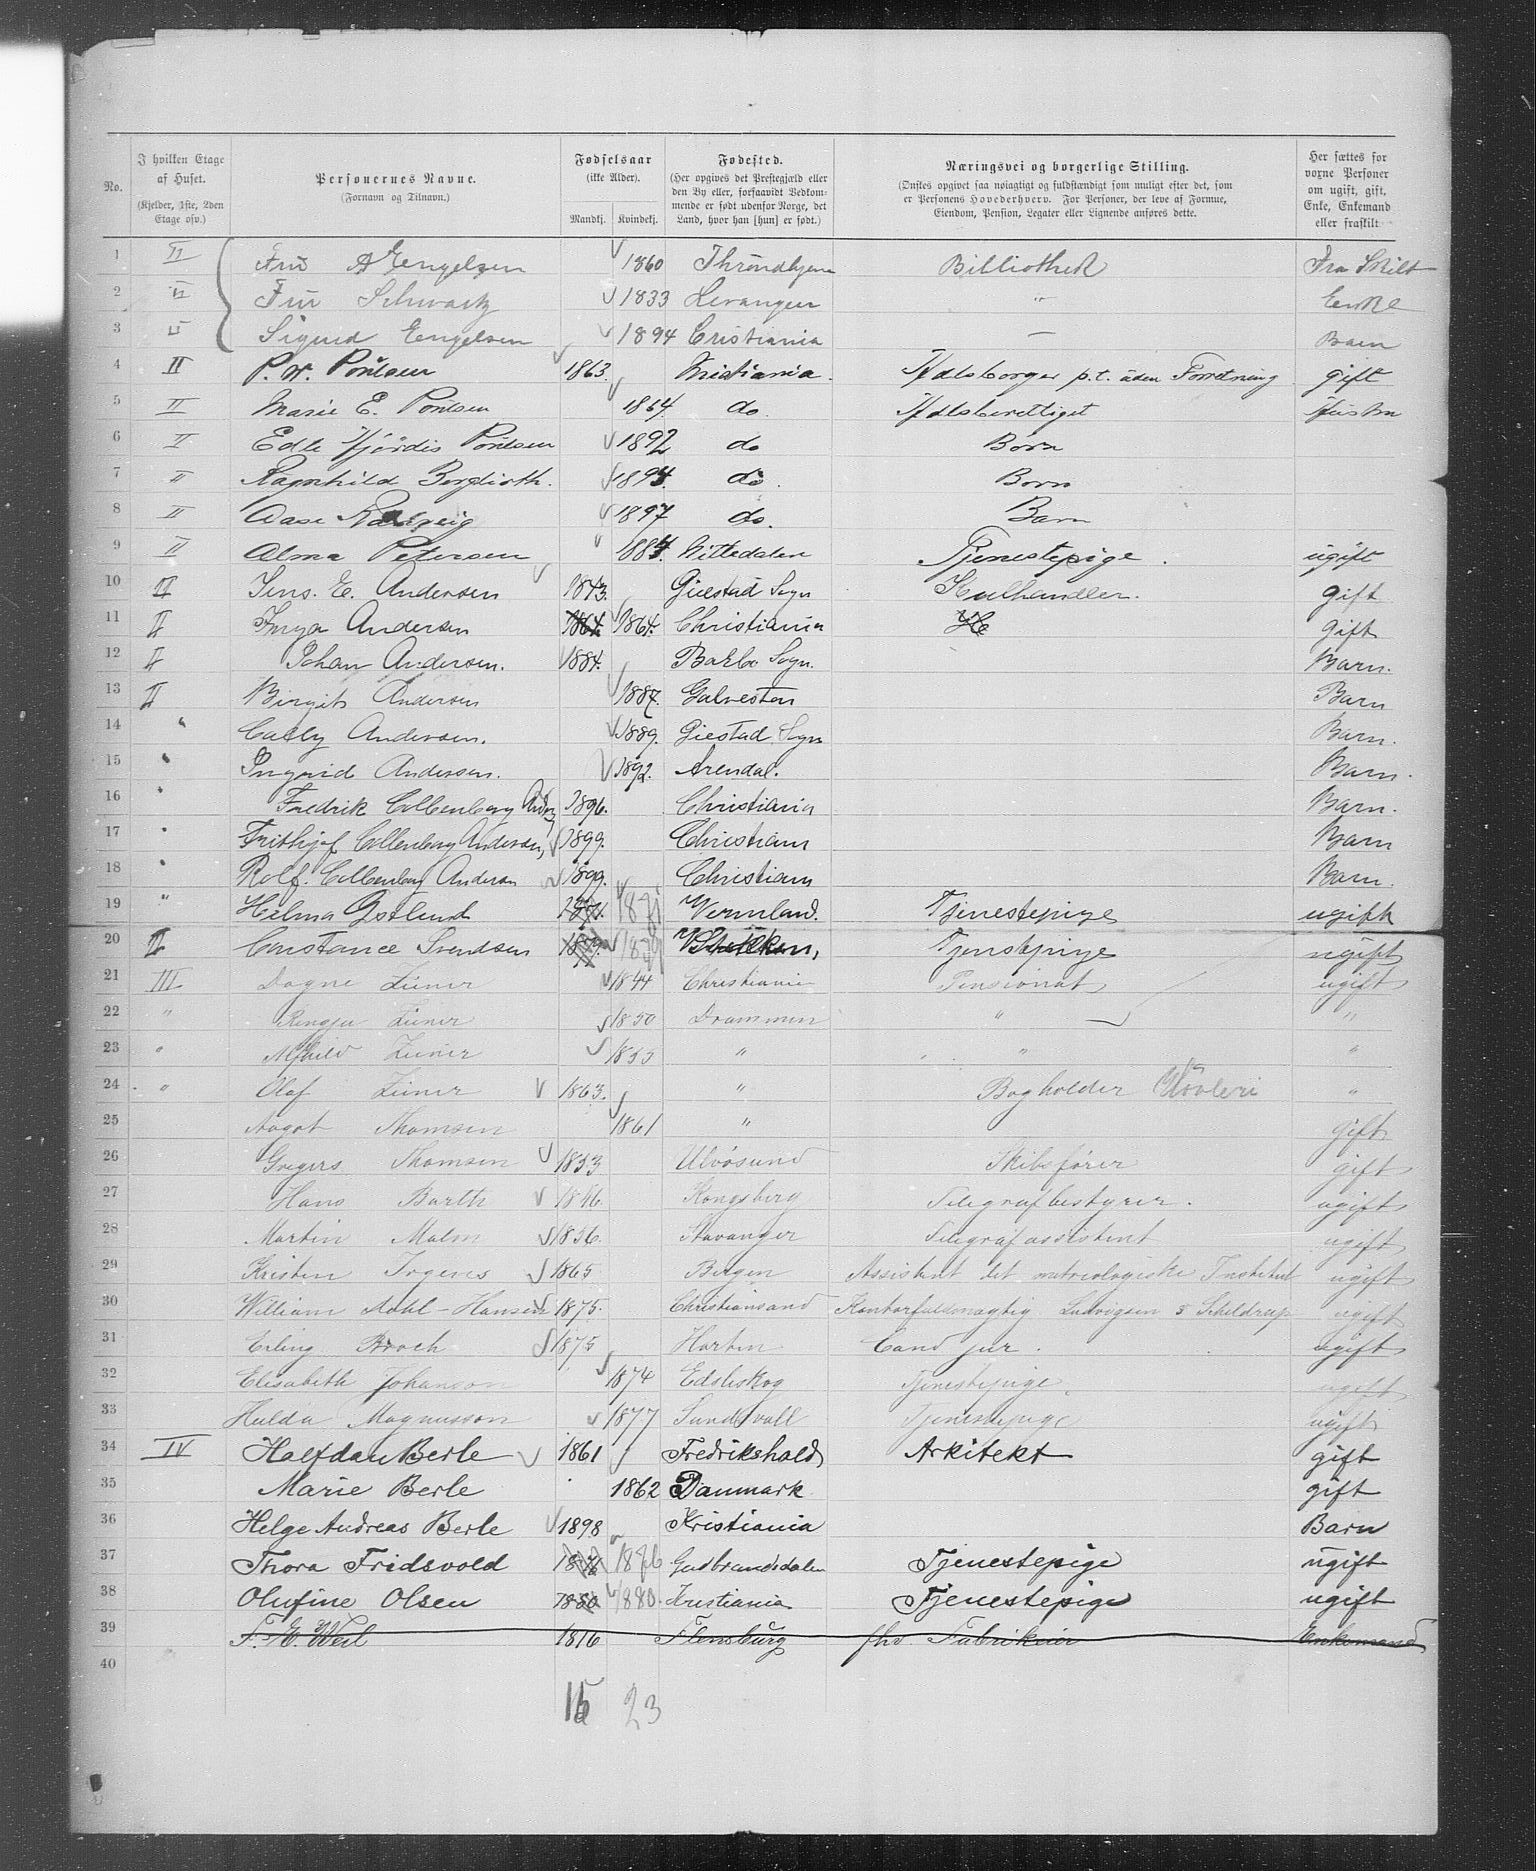 No. | I hvilken Etage af Huset. (Kjelder, 1ste, 2den Etage osv.) | Personernes Navne. (Fornavn og Tilnavn.) | Fødselsaar (ikke Alder). Mandkj. | Kvindekj. | Fødested. (Her opgives det Prestegjæld eller den By eller, forsaavidt Vedkommende er født udenfor Norge, det Land, hvor han [hun] er født.) | Næringsvei og borgerlige Stilling. (Ønskes opgivet saa nøiagtigt og fuldstændigt som muligt efter det, som er Personens Hovederhverv. For Personer, der leve af Formue, Eiendom, Pension, Legater eller Lignende anføres dette. | Her sættes for vorne Personer om ugift, gift, Enke, Enkemand eller fraskilt
1 II Fru A Engelsen 1860 Throndhjem Bibliothek Fra Skilt
2 II Fru Schwartz 1833 Levanger " Enke
3 II Sigrid Engelsen 1894 Cristiania — Barn
4 II P. W. Poulsen 1863. Kristiania. Hdlsborger p.t. uden Forretning gift
5 II Marie E. Poulsen 1864. do. Hdlsberettiget Hustru
6 II Edle Hjördis Poulsen 1892 do Born
7 II Ragnhild Bergljoth. 1894. do. Born
8 II Aase 1897 do. Barn
9 II Alma Petersen 1884 Nittedalen Tjenestepige. ugift
10 II Jens. E. Andersen 1843. Giestad Sogn Kulhandler. gift
11 II Inga Andersen 1864. 1864. Christiania H gift
12 II Johan Andersen. 1884. Barbo Sogn. Barn.
13 II Birgit Andersen 1887. Galveston Barn
14 " Cally Andersen. 1889. Giestad Sogn Barn.
15 " Ingrid Andersen. 1892. Arendal. Barn.
16 " Fredrik Collenberg Anders 1896. Christiania Barn.
17 " Frithjof Collenberg Andersen, 1899. Christiani Barn
18 " Rolf. Collenberg Andersen 1899. Christiani Barn.
19 " Hilma Østlund 1871 Vermland. Tjenestepige ugift
20 II Constance Svendsen 1879 Tjenstepige ugift
21 III Dagne Zimer 1844 Christiania Pensionat ugift
22 " Zimer 1850 Drammen " "
23 " Alfhild Zimer 1855 " " "
24 " Olaf Zimer 1863. " Bogholder "
25 Aagot Thomsen 1861 " gift
26 Gregers Thomsen 1853 Ulvösund Skibsfører gift
27 Hans Barth 1846 Kongsberg Telegrafbestyrer. ugift
28 Martin Malm 1856. Stavanger Telegrafassistent ugift
29 Kristen 1865 Bergen Assistent det metreologiske Institut ugift
30 William Dahl-Hansen 1875. Christiansand Kontorfuldmægtig Ludvigsen & Scheldrup ugift
31 Erling Broch 1875 Horten Cand jur. ugift
32 Elisabeth Johanson 1874 Edsleskog Tjenestepige. ugift
33 Hulda Magnusson 1877 Sundsvall Tjenestepige ugift
34 IV Halfdan Berle 1861 Fredrikshald Arkitekt gift
35 Marie Berle 1862 Danmark gift
36 Helge Andreas Berle 1898 Kristiania Barn
37 Thora Fridsvold 1876 1876 Gudbrandsdalen Tjenestepige ugift
38 Olufine Olsen 1880 1880. Kristiania Tjenestepige ugift
39 F. M. Weil 1816 Flensburg fhv. Fabrikeier Enkemand
40
15 23